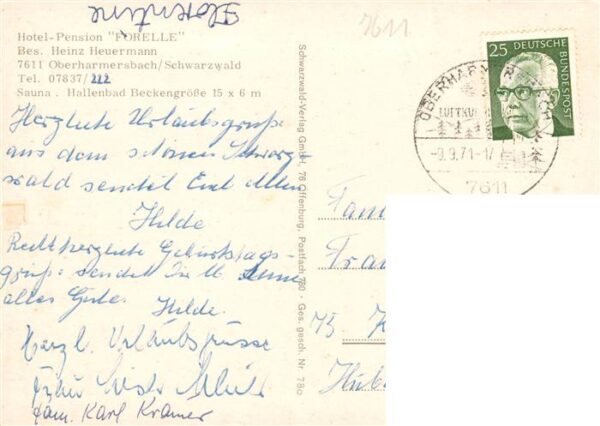 Florentine
7611
Hotel-Pension "FORELLE"
Bes. Heinz Heuermann
7611 Oberharmersbach/Schwarzwald
Tel. 07837/222
Sauna . Hallenbad Beckengröße 15 x 6 m
Herzliche Urlaubsgrüße
aus dem schönen Schwarz-
wald sendet Euch allen
Hilde
Recht herzliche Geburtstags-
grüße sendet
alles Gute. Hilde.
Herzl. Urlaubsgrüsse
Fam. Karl Kramer
Schwarzwald-Verlag GmbH, 76 Offenburg, Postfach 780 · Ges. gesch. Nr. 780
25 DEUTSCHE BUNDESPOST
LUFTKU
-9.9.71-17
7611
Fam
Frau
75 K
Hub